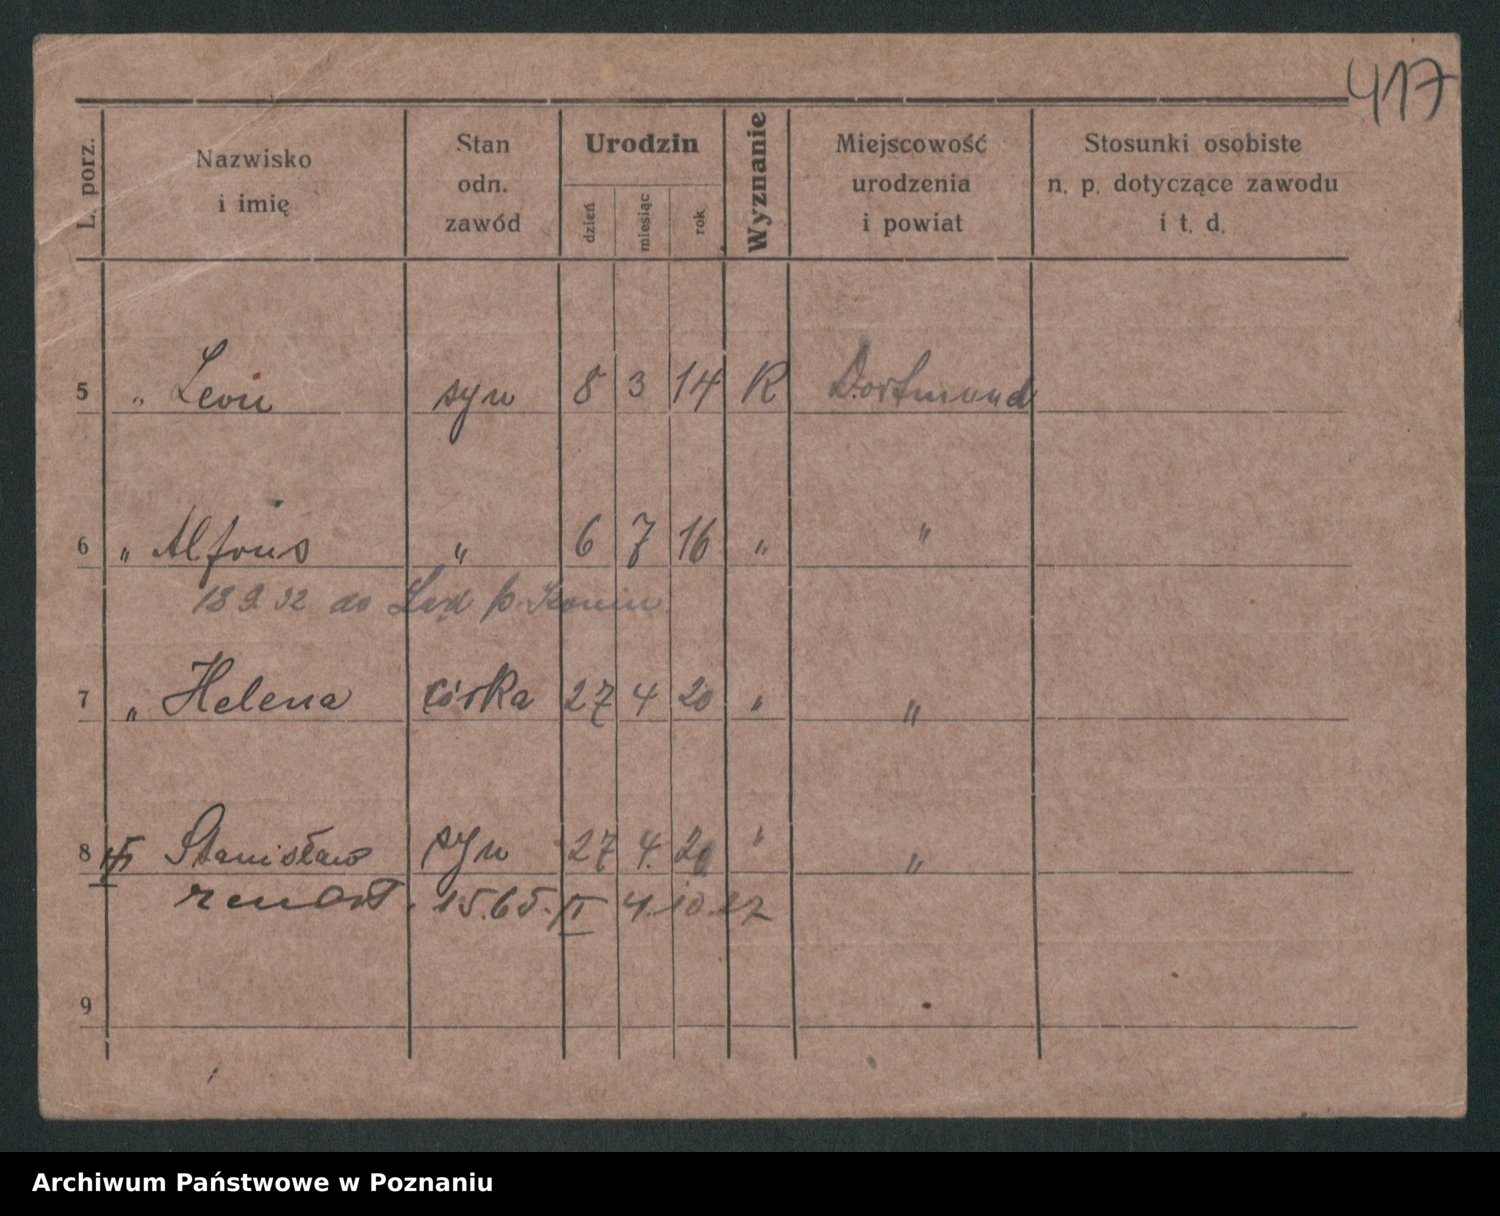 417
L. porz.
Nazwisko
i imię
Stan
odn.
zawód
Urodzin
dzień
miesiąc
rok
Wyznanie
Miejscowość
urodzenia
i powiat
Stosunki osobiste
n. p. dotyczące zawodu
i t. d.
5 „ Leon syn 8 3 14 R Dortmund
6 „ Alfons „ 6 7 16 „ „
18 9 32 do p. Konin
7 „ Helena córka 27 4 20 „ „
8 Stanisław syn 27 4. 20 „ „
15.65. II 4.10.27
9
Archiwum Państwowe w Poznaniu